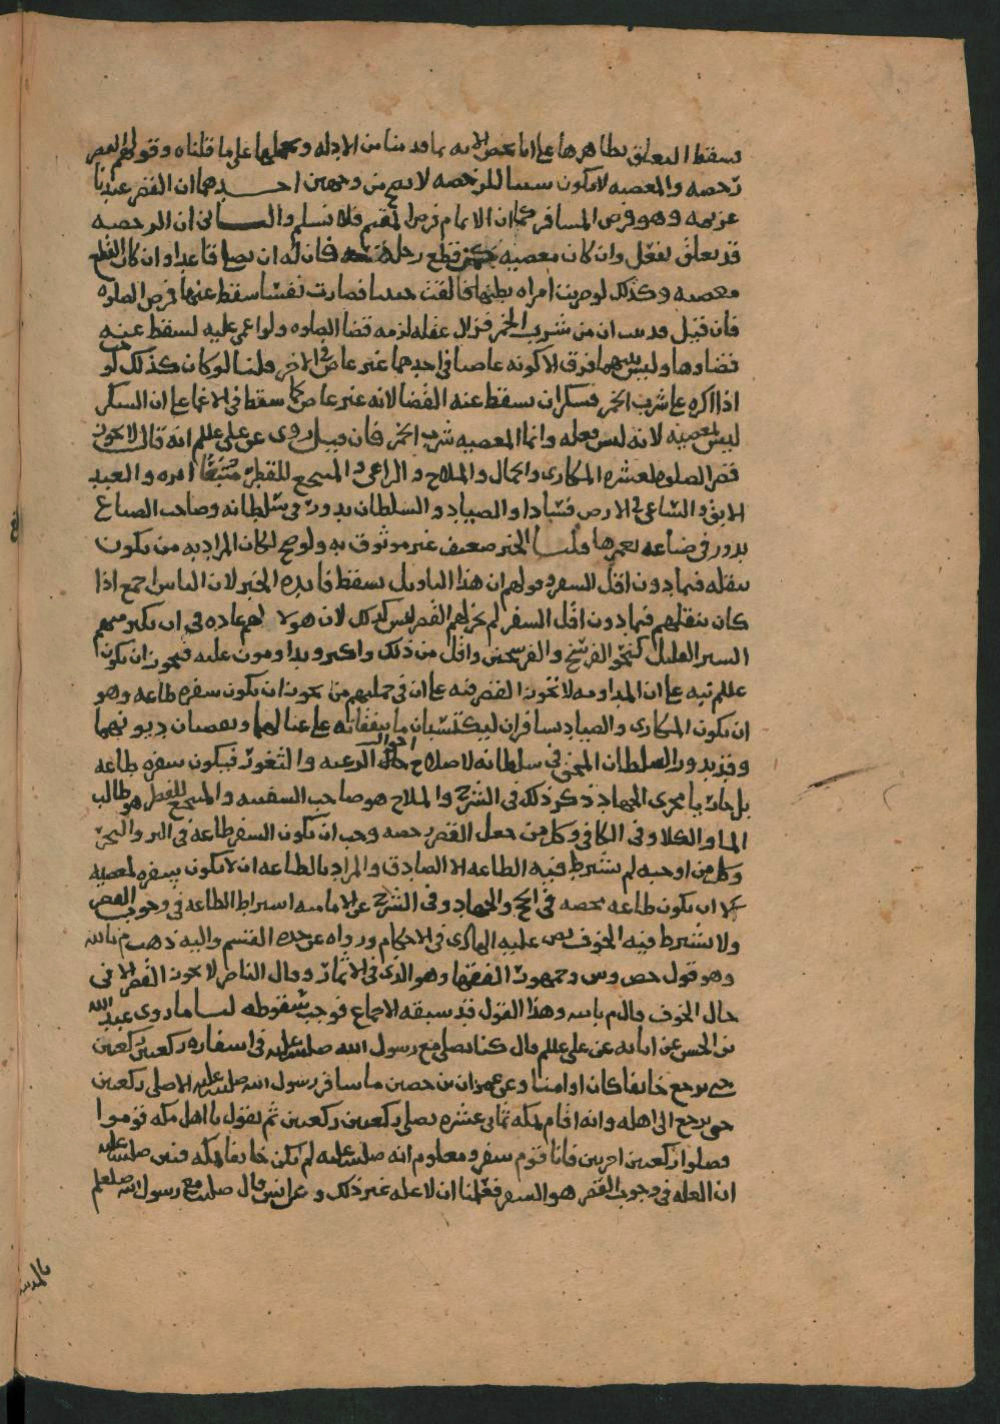 فسقط التعلق بظاهرها على انا نخص الايه بما قدمنا من الادله ونحملها على ما قلناه وقولهم القصر
رخصه والمعصيه لا تكون سببا للرخصه لا يصح من وجهين احدهما ان القصر عندنا
عزيمه وهو فرض المسافر كما ان الاتمام فرض المقيم فلا نسلم والثانى ان الرخصه
قد تعلق بفعل وان كان معصيه كمن قطع رجله فان له ان يصلى قاعدا وان كان القطع
معصيه وكذلك لو ضربت امراه بطنها فالقت جنينا فصارت نفسا سقط عنها فرض الصلوه
فان قيل قد ثبت ان من شرب الخمر فزال عقله لزمه قضا الصلوه ولو اغمى عليه لسقط عنه
قضاوها وليس بينهما فرق الا كونه عاصيا فى احدهما غير عاص فى الاخر قلنا لو كان كذلك لوجب
اذا اكره على شرب الخمر فسكر ان يسقط عنه القضا لانه غير عاص كما سقط فى الاغما على ان السكر
ليس بمعصيه لانه ليس بفعله وانما المعصيه شرب الخمر فان قيل روى عن على عللم انه قال لا يجوز
قصر الصلوه لعشره المكارى والجمال والملاح والراعى والمنتجع للقطر متتبعا اثره والعبد
الابق والساعى فى الارض فسادا والصياد والسلطان يدور فى سلطانه وصاحب الضياع
يدور فى ضياعه يعمرها قلنا الخبر ضعيف غير موثوق به ولو صح لكان المراد به من يكون
تنقله فيما دون اقل السفر وقولهم ان هذا التاويل يسقط فايده الخبر لان الناس اجمع اذا
كان تنقلهم فيما دون اقل السفر لم يجز لهم القصر ليس كذلك لان هولا لهم عاده فى ان يكثر منهم
السير القليل كنحو الفرسخ والفرسخين واقل من ذلك واكثر ويداومون عليه فيجوز ان يكون
عللم نبه على ان المداومه لا تجوز القصر فيه على ان فى جملتهم من يجوز ان يكون سفره طاعه وهو
ان يكون المكارى والصياد يسافران ليكتسبان ما ينفقانه على عيالهما ويقضيان ديونهما
وقد يدور السلطان المحق فى سلطانه لاصلاح احوال الرعيه والثغور فيكون سفره طاعه
بل جاريا مجرى الجهاد ذكر ذلك فى الشرح والملاح هو صاحب السفينه والمنتجع للقطر هو طالب
الما والكلا وفى الكافى وكل من جعل القصر رخصه وجب ان يكون السفر طاعه فى البر والبحر
وكل من اوجبه لم يشترط فيه الطاعه الا الصادق والمراد بالطاعه ان لا يكون سفره لمعصيه
لا ان يكون طاعه محضه فى الحج والجهاد وفى الشرح عن الاماميه اشتراط الطاعه فى وجوب القصر
ولا يشترط فيه الخوف نص عليه الهادى فى الاحكام ورواه عن جده القسم واليه ذهب م بالله
وهو قول حص وس وجمهور الفقها وهو الذى فى الاثمار وقال الناصر لا يجوز القصر الا فى
حال الخوف قال م بالله وهذا القول قد سبقه الاجماع فوجب سقوطه لنا ما روى عبد الله
بن الحسن عن ابائه عن على عللم قال كنا نصلى مع رسول الله صلى الله عليه فى اسفاره ركعتين ركعتين
حتى يرجع خايفا كان او امنا وعن عمران بن حصين ما سافر رسول الله صلى الله عليه الا صلى ركعتين
حتى يرجع الى اهله وانه اقام بمكه ثمانى عشره يصلى ركعتين ركعتين ثم يقول يا اهل مكه قوموا
فصلوا ركعتين اخريين فانا قوم سفر ومعلوم انه صلى الله عليه لم يكن خايفا بمكه فبين صلى الله عليه
ان العله فى وجوب القصر هو السفر فعلمنا ان لا عله غير ذلك وعن انس قال صليت مع رسول الله صلعلم
بالمدينه